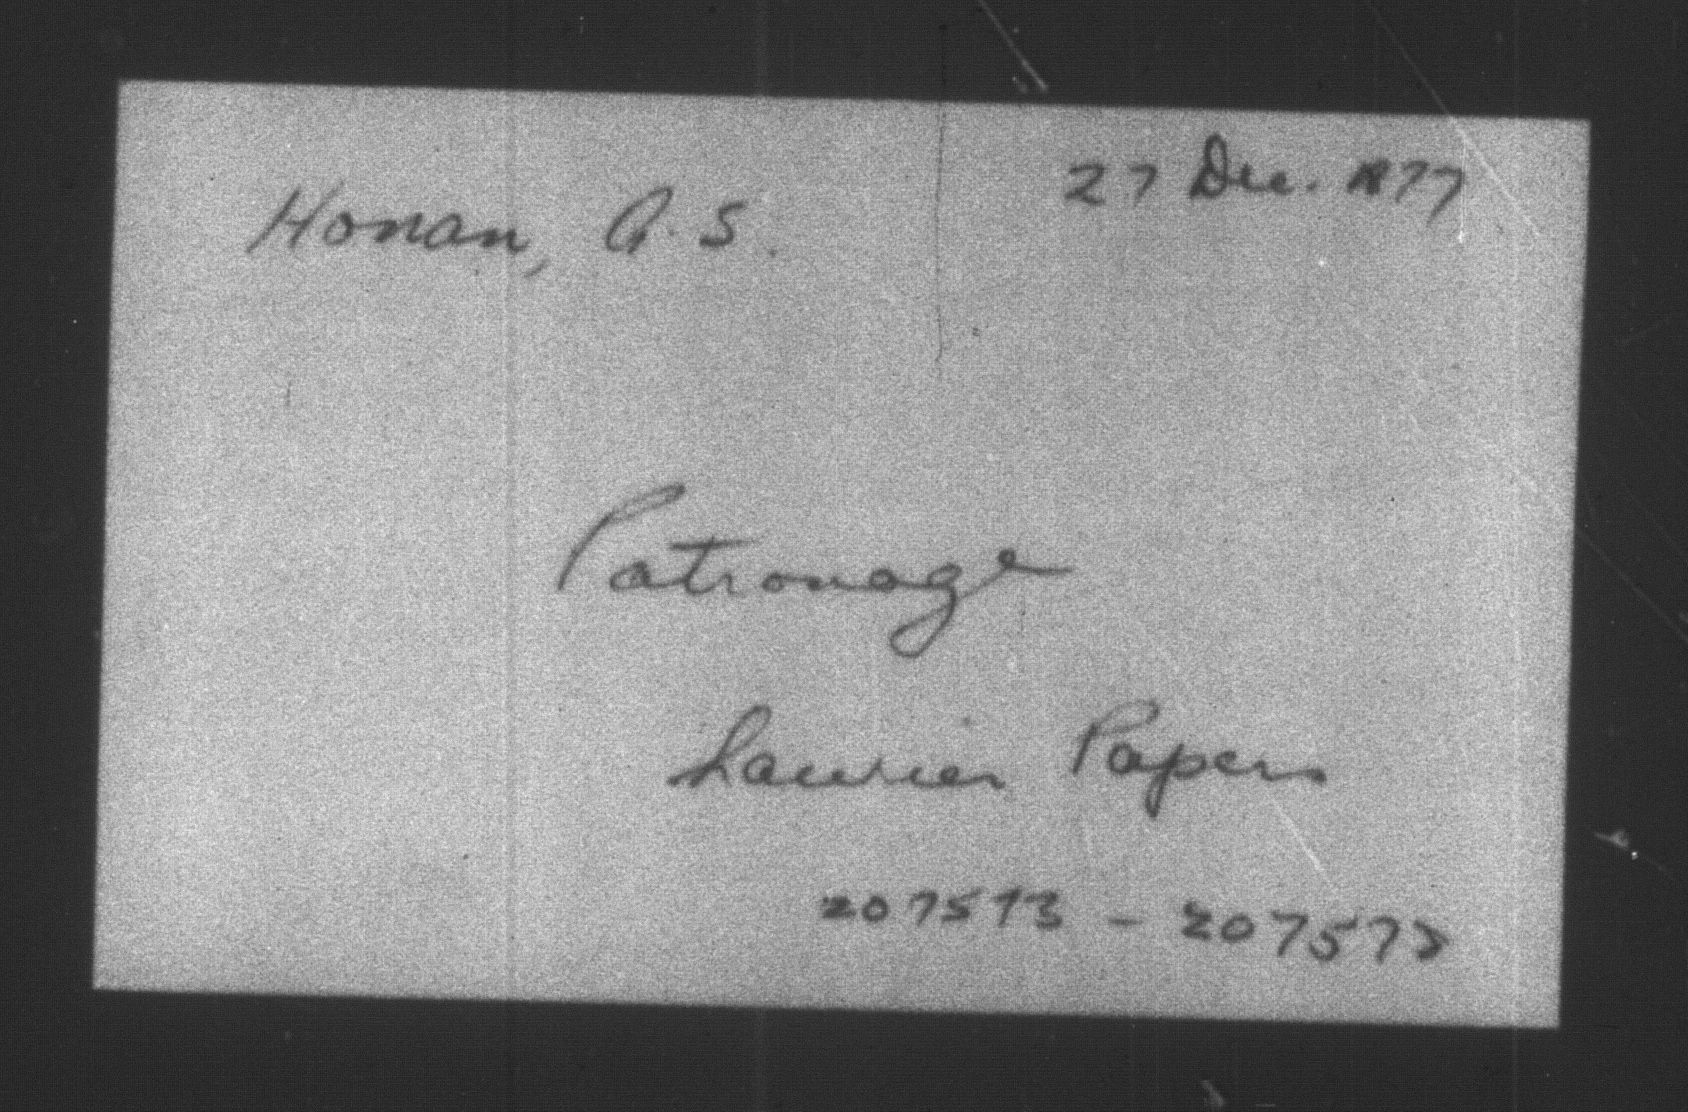 Honan, A. S. 27 Dec. 1877
Patronage
Laurier Papers
207573 - 207577